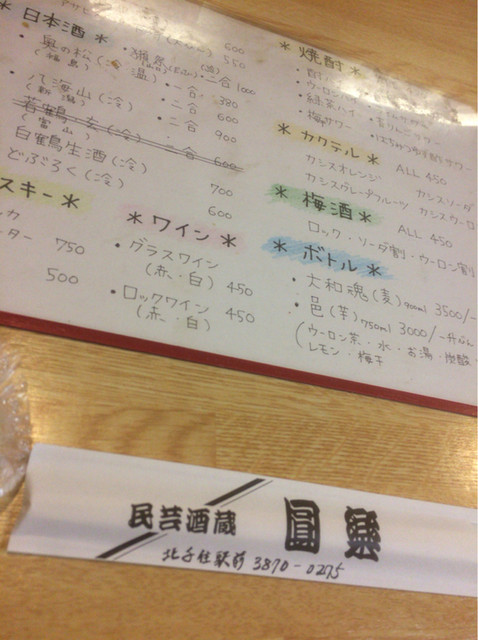 600
＊日本酒＊
550
奥の松(冷、温)
(福島)
・二合 1000
・一合 380
・八海山(冷)
(新潟)
・二合 600
・二合 900
(富山) 二合 600
白鶴生酒(冷) 700
どぶろく(冷) 600
スキー＊
ーター 750
500
＊ワイン＊
・グラスワイン
(赤・白) 450
・ロックワイン
(赤・白) 450
＊焼酎＊
ウーロンハイ
緑茶ハイ
・梅サワー
＊カクテル＊ ALL 450
カシスオレンジ カシスソーダ
カシスグレープフルーツ カシスウーロ
＊梅酒＊ ALL 450
ロック・ソーダ割・ウーロン割
＊ボトル＊
・大和魂(麦) 3500/-
・邑(芋) 750ml 3000/-
(ウーロン茶・水・お湯・炭酸
レモン・梅干
民芸酒蔵 圓樂
北千住駅前 3870-0275